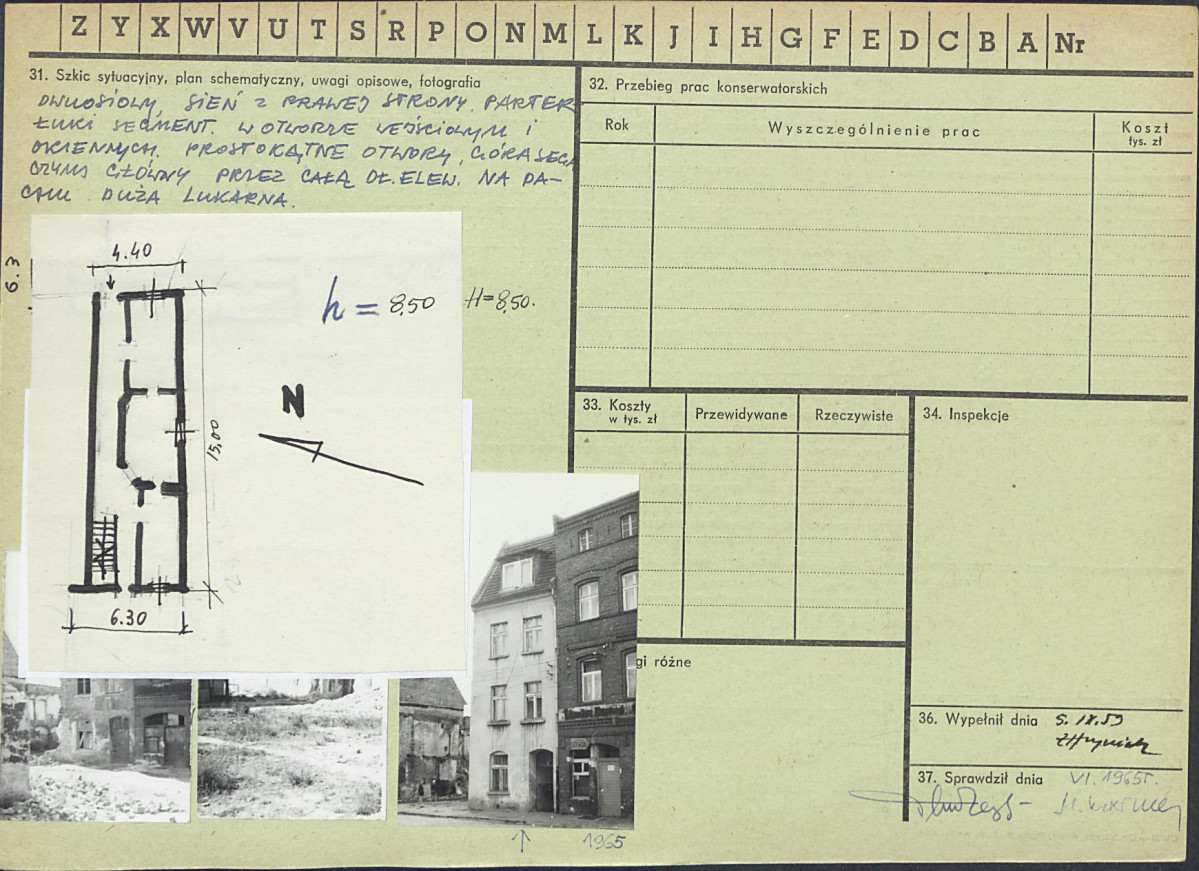 Z Y X W V U T S R P O N M L K J I H G F E D C B A Nr
31. Szkic sytuacyjny, plan schematyczny, uwagi opisowe, fotografia
DWUOSIOWY, SIEŃ Z PRAWEJ STRONY. PARTER
ŁUKI SEGMENT. W OTWORZE WEJŚCIOWYM I
OKIENNYCH. PROSTOKĄTNE OTWORY, GÓRĄ SEG
GZYMS GŁÓWNY PRZEZ CAŁĄ DŁ. ELEW. NA DA-
CHU DUŻA LUKARNA.
6.3
4.40
h = 8,50
H=8,50.
N
15,00
6.30
1965
32. Przebieg prac konserwatorskich
Rok
Wyszczególnienie prac
Koszt
tys. zł
33. Koszty
w tys. zł
Przewidywane
Rzeczywiste
34. Inspekcje
gi różne
36. Wypełnił dnia 5. IX.59
37. Sprawdził dnia VI. 1965r.